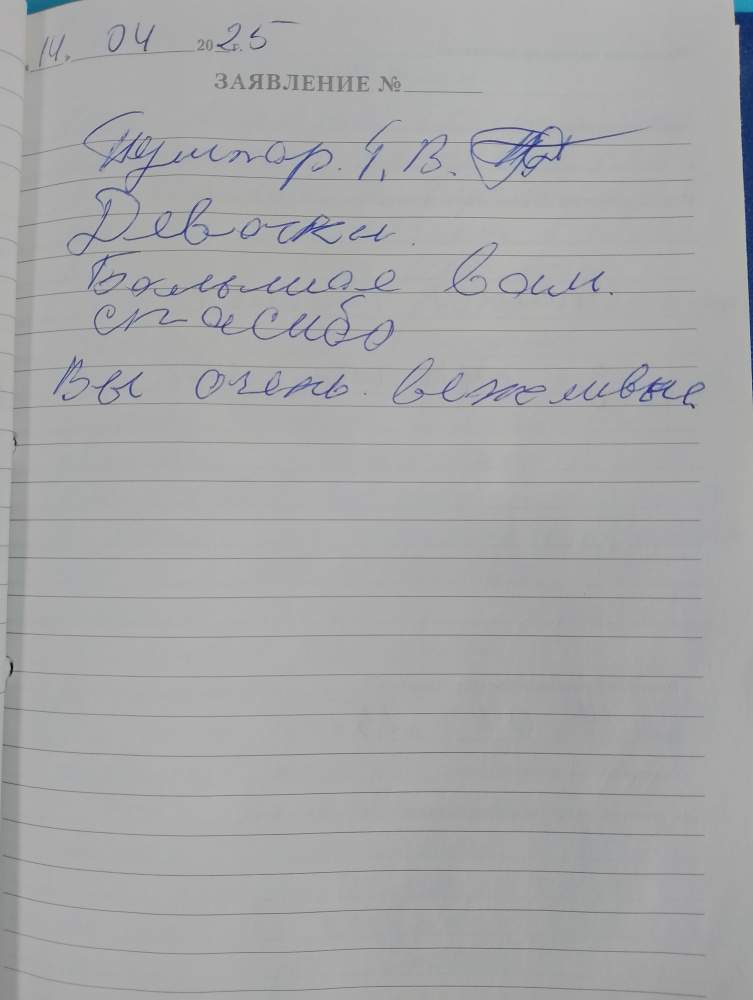 14. 04 2025
ЗАЯВЛЕНИЕ №
В.
Девочки.
Большое вам.
спасибо
Вы очень вежливые